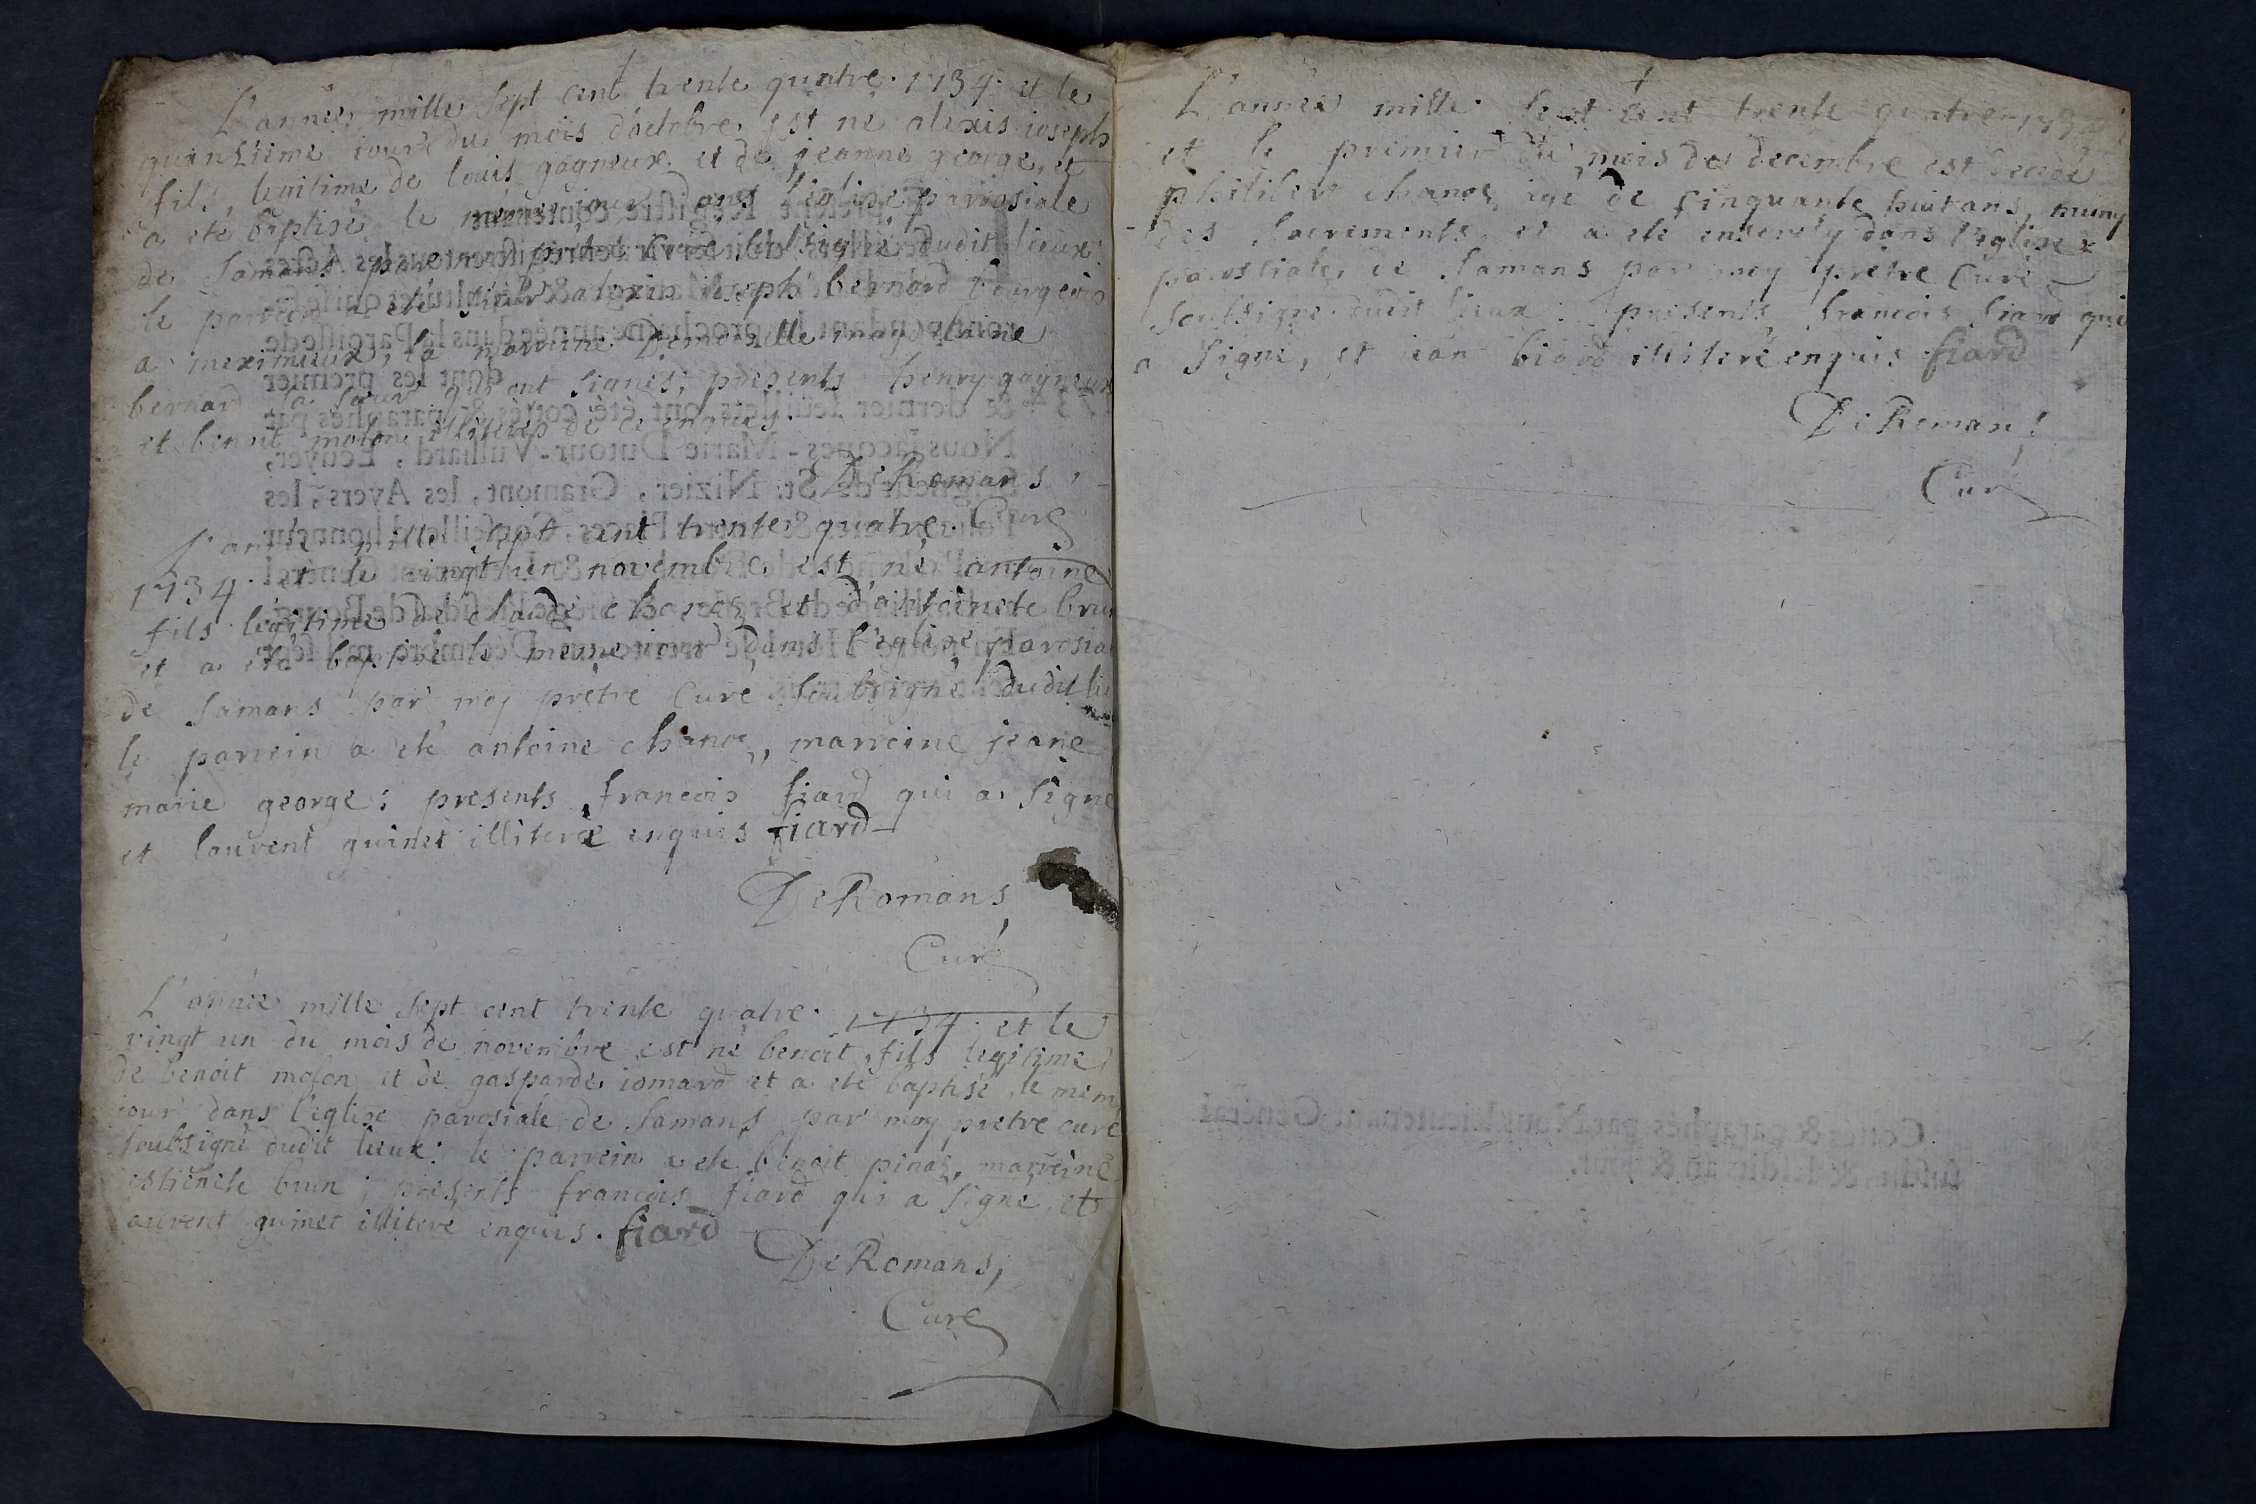 L'année mille sept cent trente quatre. 1734. et le
quinsieme iour du mois d'octobre, est né alexis ioseph
fils legitime de louis gagneux et de jeanne george, et
a eté baptisé le meme jour dans l'eglise parrosiale
de Samans par moy pretre Curé soubsigné dudit lieux:
le parrein a eté sieur alexis joseph bernard bourgeois
a meximieux, la marrine Demoiselle magdelaine
bernard sa sœur qui ont signés; presents henry gagneux
et benoit molon illiterés de ce enquis.
De Romans,
Curé
L'année mille sept cent trente quatre.
1734. et le vingt un novembre, est né antoine
fils legitime de claude chanos et d'antoinete brun
et a eté baptisé le meme jour dans l'eglise parosial
de Samans par moy prêtre Curé soubsigné dudit li
le parrein a eté antoine chanos, marreine jeane
marie george; presents francois fiard qui a signe
et laurent guinet illiteré enquis fiard
De Romans,
Curé
L'année mille sept cent trente quatre. 1734. et le
vingt un du mois de novembre est né benoit, fils legitime
de benoit molon et de gasparde iomard et a eté baptisé le mem
iour dans l'eglise parosiale de Samans par moy pretre curé
soubsigné dudit lieux: le parrein a eté benoit pinos, marreine
estienete brun; presents francois fiard qui a signe et
aurent guinet illiteré enquis. fiard
De Romans,
Curé
L'année mille sept cent trente quatre 1734
et le premier du mois de decembre est decedé
philiber chanos, agé de cinquante huit ans, muny
des sacrements, et a eté ensevely dans l'eglise
parosiale, de Samans par moy prêtre Curé
soubsigné dudit lieux: presents francois fiard qui
a signé, et iean biard illiteré enquis fiard
De Romans,
Curé